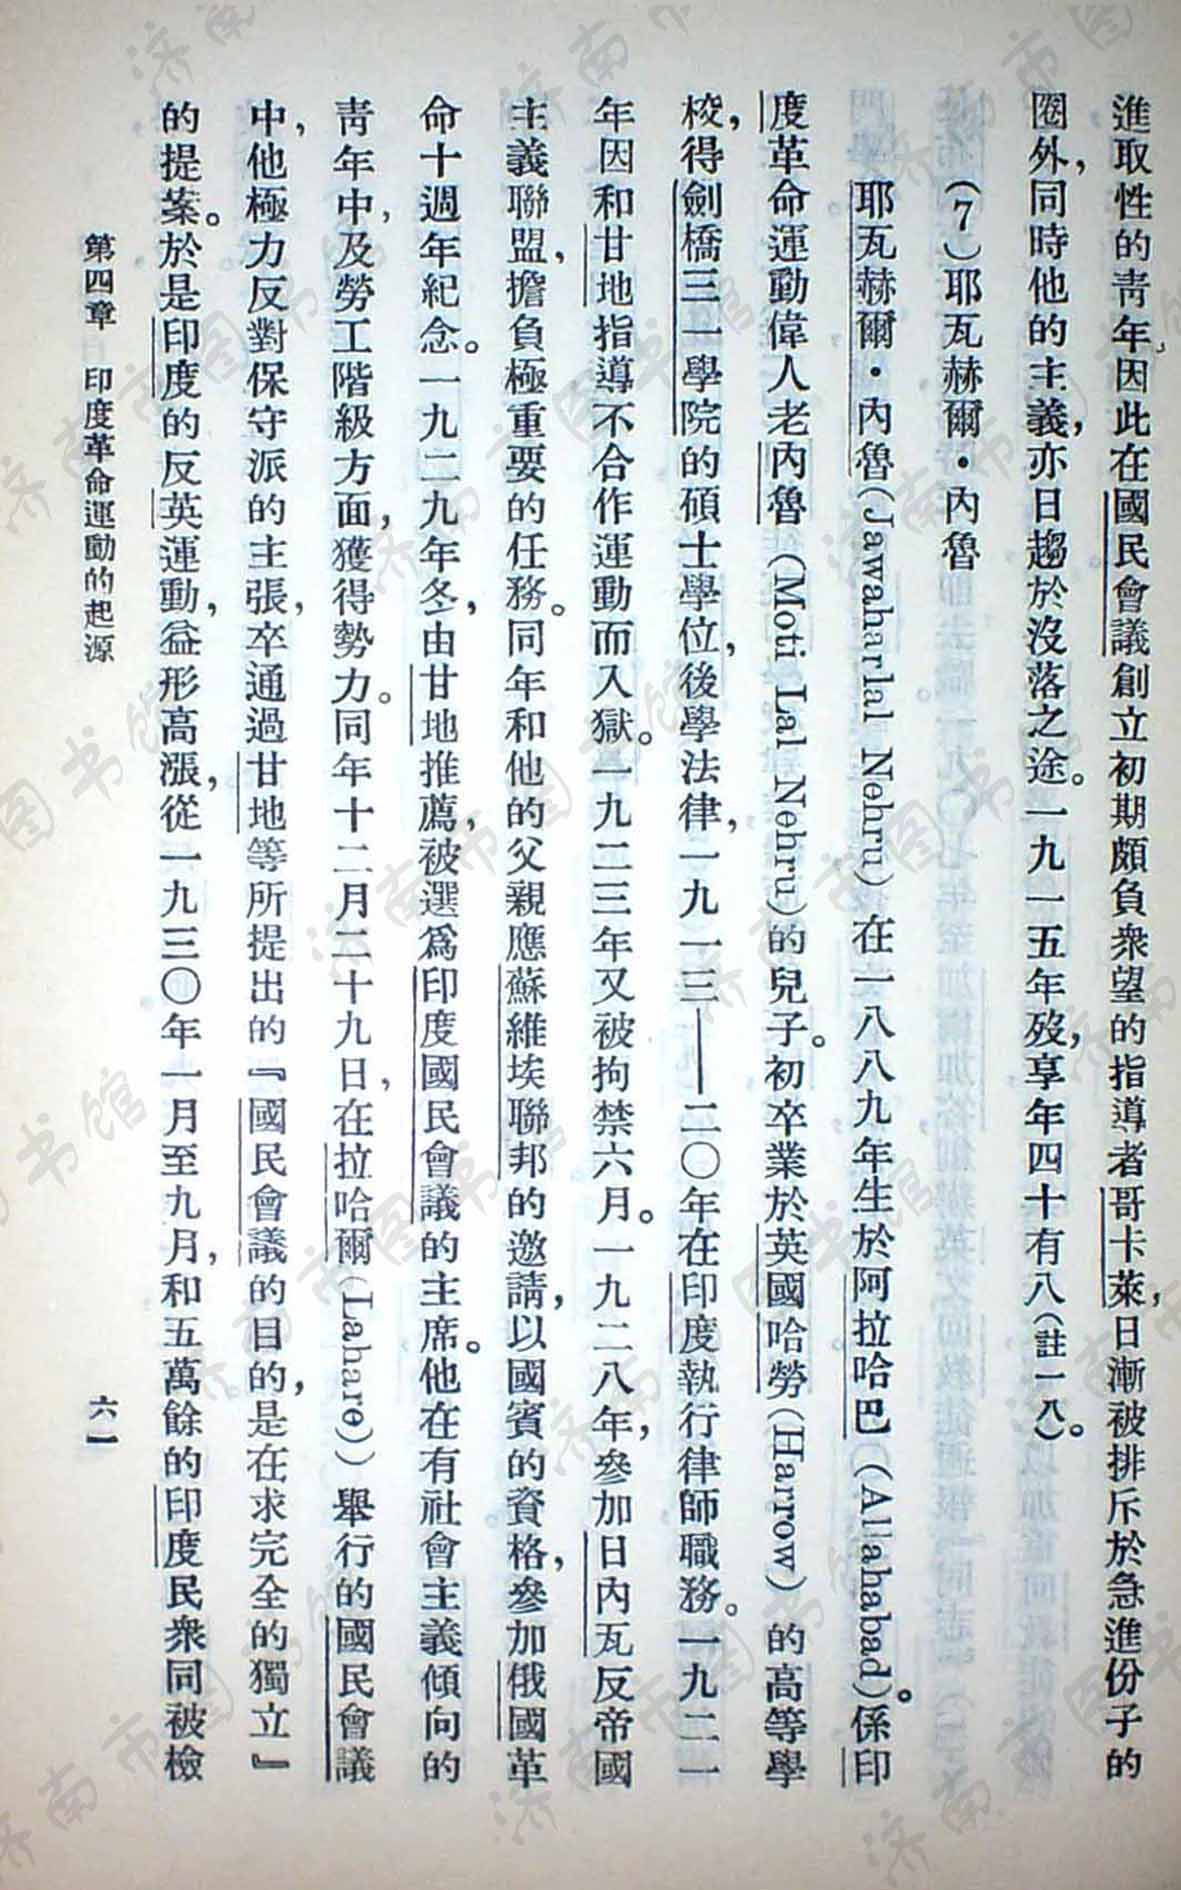 進取性的靑年，因此在國民會議創立初期頗負衆望的指導者哥卡萊，日漸被排斥於急進份子的
圈外，同時他的主義，亦日趨於沒落之途。一九一五年歿，享年四十有八（註一八）。
（7）耶瓦赫爾・內魯
耶瓦赫爾・內魯（Jawaharlal Nehru）在一八八九年生於阿拉哈巴（Allahabad）。係印
度革命運動偉人老內魯（Moti Lal Nehru）的兒子。初卒業於英國哈勞（Harrow）的高等學
校，得劍橋三一學院的碩士學位，後學法律，一九一三——二〇年在印度執行律師職務。一九二一
年因和甘地指導不合作運動而入獄。一九二三年又被拘禁六月。一九二八年，參加日內瓦反帝國
主義聯盟，擔負極重要的任務。同年和他的父親應蘇維埃聯邦的邀請，以國賓的資格，參加俄國革
命十週年紀念。一九二九年冬，由甘地推薦，被選爲印度國民會議的主席。他在有社會主義傾向的
靑年中，及勞工階級方面，獲得勢力。同年十二月二十九日，在拉哈爾（Lahare））舉行的國民會議
中，他極力反對保守派的主張，卒通過甘地等所提出的『國民會議的目的，是在求完全的獨立』
的提案。於是印度的反英運動，益形高漲，從一九三〇年一月至九月，和五萬餘的印度民衆同被檢
第四章 印度革命運動的起源
六一
济南市图书馆